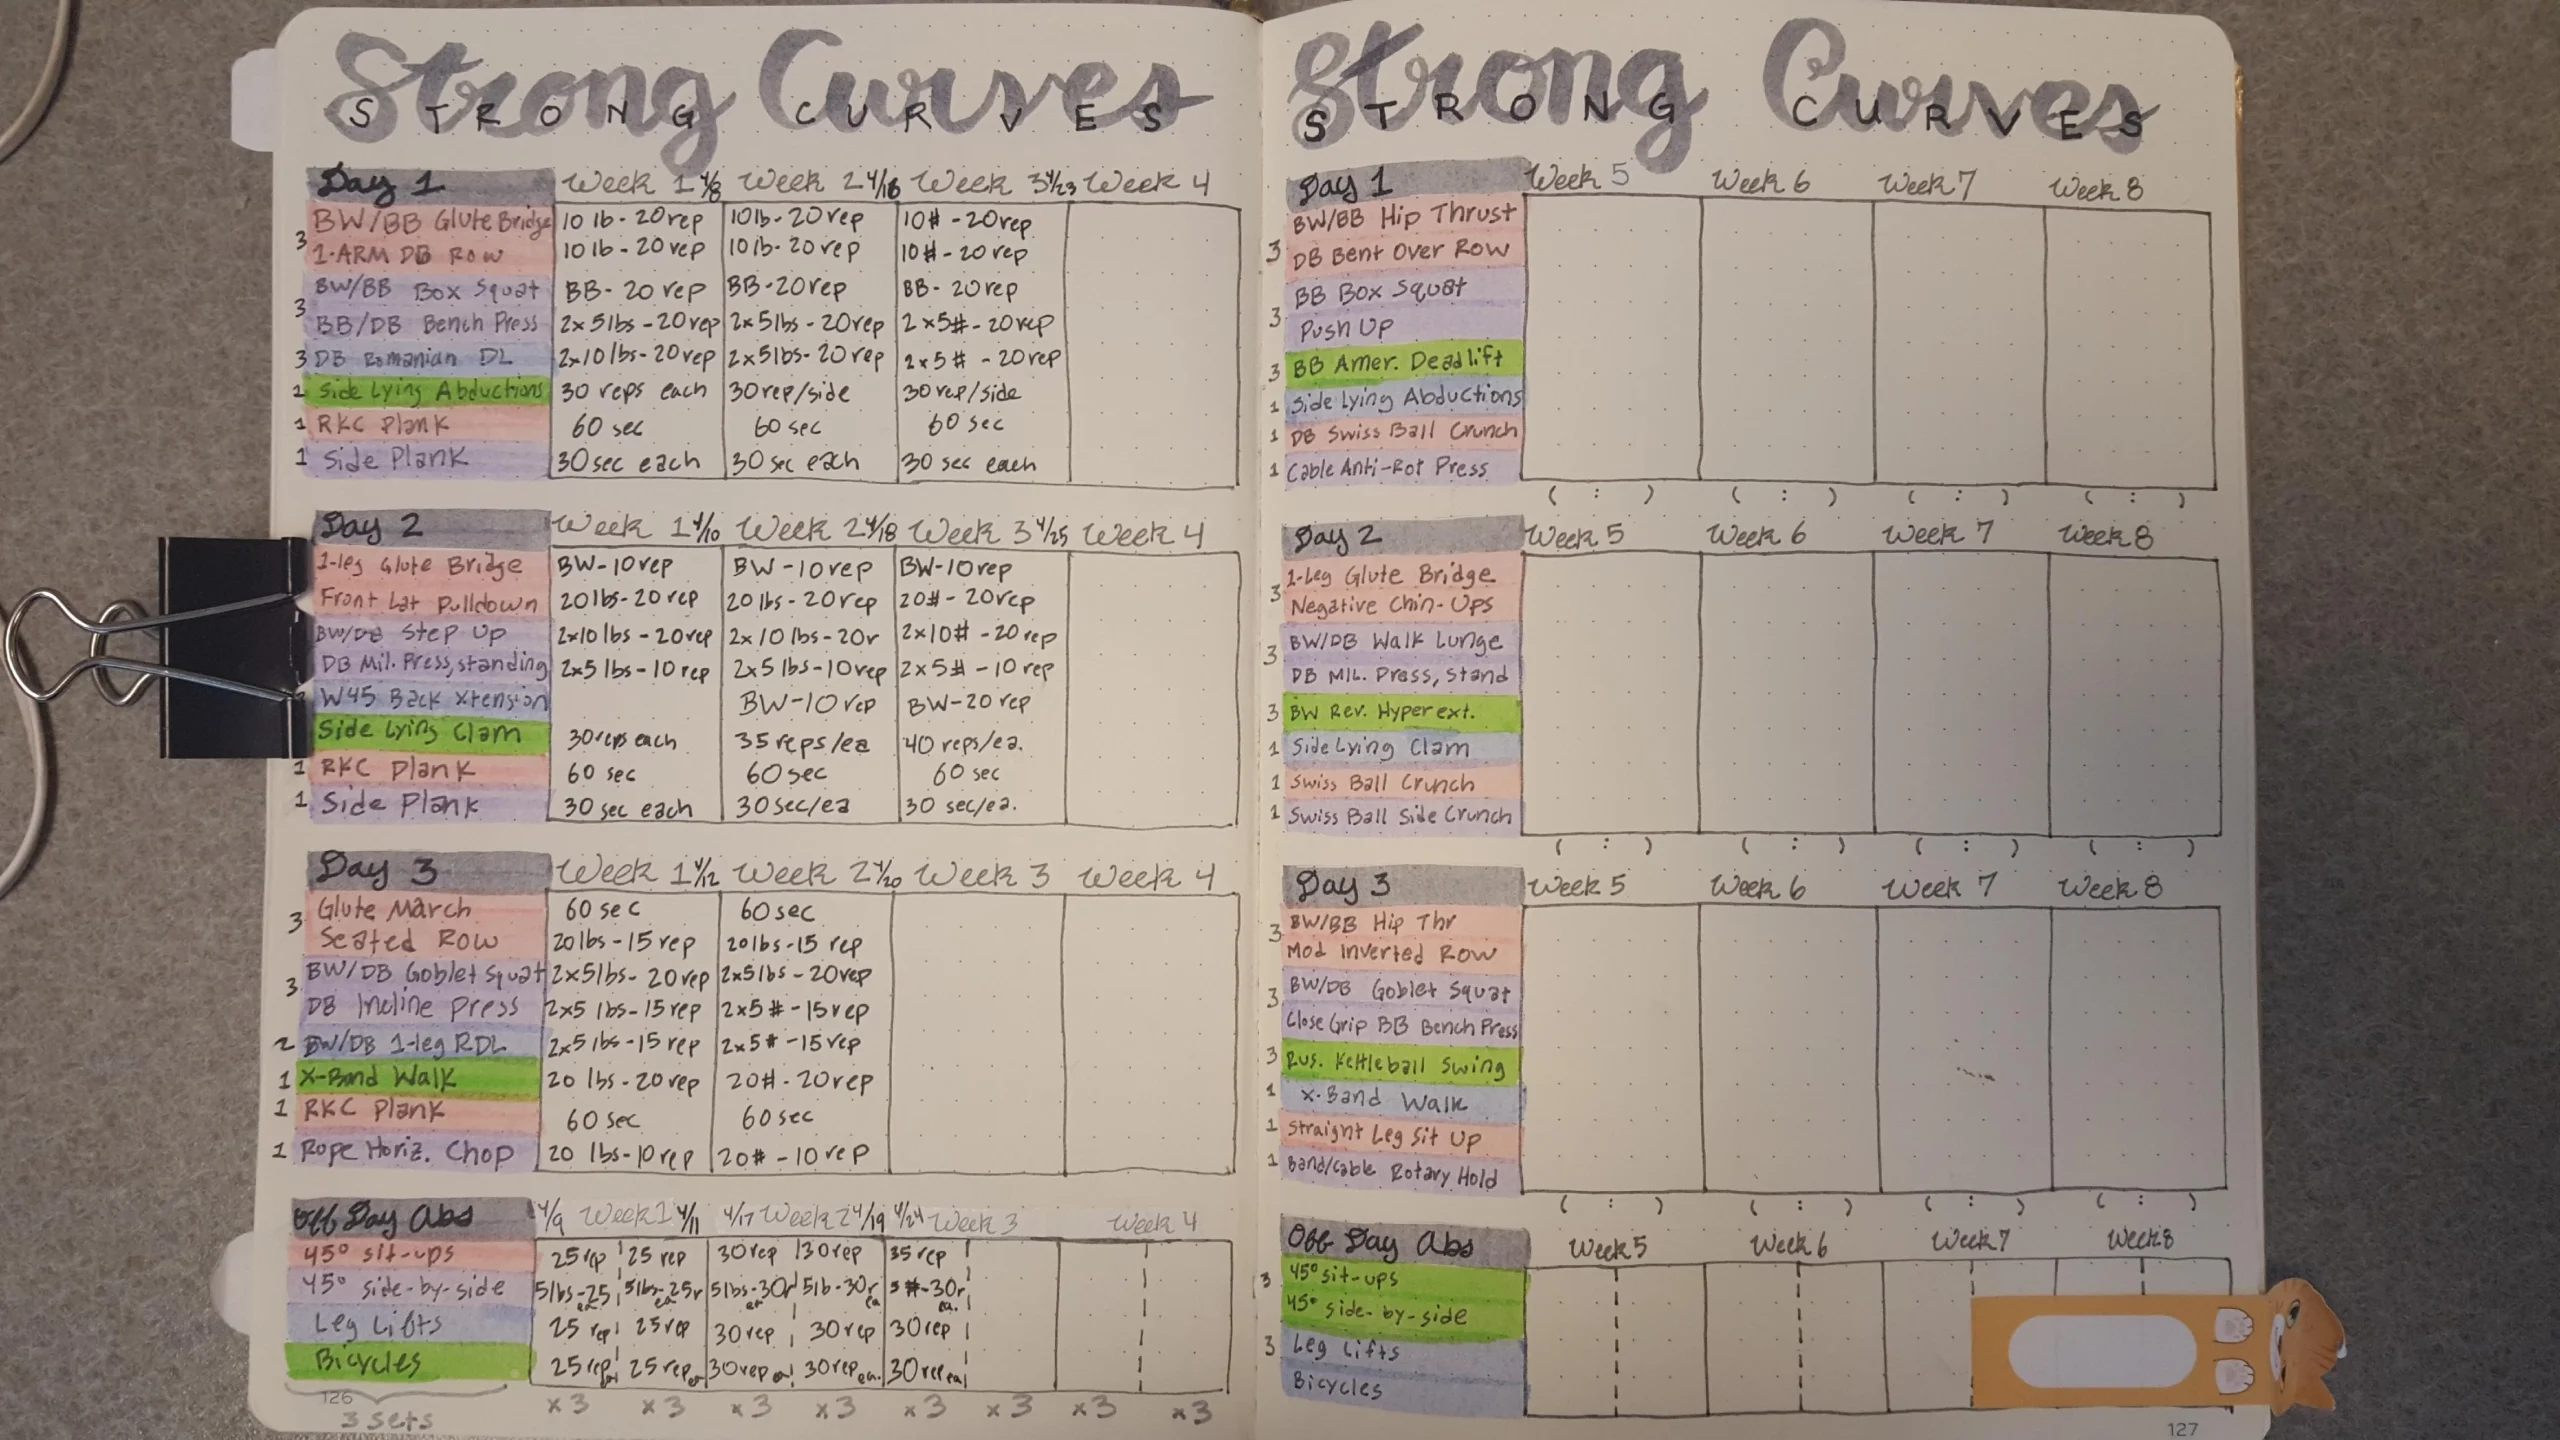 Strong Curves
STRONG CURVES
Day 1 Week 1 4/8 Week 2 4/16 Week 3 4/23 Week 4
3 BW/BB Glute Bridge 10 lb - 20 rep 10 lb - 20 rep 10# - 20 rep
1-ARM DB Row 10 lb - 20 rep 10 lb - 20 rep 10# - 20 rep
3 BW/BB Box Squat BB - 20 rep BB - 20 rep BB - 20 rep
BB/DB Bench Press 2x5lbs - 20 rep 2x5lbs - 20 rep 2x5# - 20 rep
3 DB Romanian DL 2x10 lbs - 20 rep 2x5lbs - 20 rep 2x5# - 20 rep
1 Side Lying Abductions 30 reps each 30 rep/side 30 rep/side
1 RKC Plank 60 sec 60 sec 60 sec
1 Side Plank 30 sec each 30 sec each 30 sec each
Day 2 Week 1 4/10 Week 2 4/18 Week 3 4/25 Week 4
1-leg Glute Bridge BW - 10 rep BW - 10 rep BW - 10 rep
Front Lat Pulldown 20 lbs - 20 rep 20 lbs - 20 rep 20# - 20 rep
BW/DB Step Up 2x10 lbs - 20 rep 2x10 lbs - 20r 2x10# - 20 rep
DB Mil. Press, standing 2x5 lbs - 10 rep 2x5 lbs - 10 rep 2x5# - 10 rep
W45 Back Xtension BW - 10 rep BW - 20 rep
Side Lying Clam 30 reps each 35 reps/ea 40 reps/ea.
1 RKC Plank 60 sec 60 sec 60 sec
1 Side Plank 30 sec each 30 sec/ea 30 sec/ea.
Day 3 Week 1 4/12 Week 2 4/20 Week 3 Week 4
3 Glute March 60 sec 60 sec
Seated Row 20 lbs - 15 rep 20 lbs - 15 rep
3 BW/DB Goblet Squat 2x5lbs - 20 rep 2x5lbs - 20 rep
DB Incline Press 2x5 lbs - 15 rep 2x5# - 15 rep
2 BW/DB 1-leg RDL 2x5 lbs - 15 rep 2x5# - 15 rep
1 X-Band Walk 20 lbs - 20 rep 20# - 20 rep
1 RKC Plank 60 sec 60 sec
1 Rope Horiz. Chop 20 lbs - 10 rep 20# - 10 rep
Off Day Abs 4/9 Week 1 4/11 4/17 Week 2 4/19 4/24 Week 3 Week 4
45° sit-ups 25 rep 25 rep 30 rep 30 rep 35 rep
45° side-by-side 5lbs - 25 ea 5lbs - 25r ea 5lbs - 30r ea 5lb - 30r ea 5# - 30r ea.
Leg Lifts 25 rep 25 rep 30 rep 30 rep 30 rep
Bicycles 25 rep ea 25 rep ea 30 rep ea 30 rep ea. 30 rep ea
126
3 sets x3 x3 x3 x3 x3 x3 x3 x3
Strong Curves
STRONG CURVES
Day 1 Week 5 Week 6 Week 7 Week 8
BW/BB Hip Thrust
3 DB Bent Over Row
BB Box Squat
3 Push Up
3 BB Amer. Deadlift
1 Side Lying Abductions
1 DB Swiss Ball Crunch
1 Cable Anti-Rot Press
( : ) ( : ) ( : ) ( : )
Day 2 Week 5 Week 6 Week 7 Week 8
3 1-Leg Glute Bridge
Negative Chin-Ups
3 BW/DB Walk Lunge
DB Mil. Press, Stand
3 BW Rev. Hyperext.
1 Side Lying Clam
1 Swiss Ball Crunch
1 Swiss Ball Side Crunch
( : ) ( : ) ( : ) ( : )
Day 3 Week 5 Week 6 Week 7 Week 8
3 BW/BB Hip Thr
Mod Inverted Row
3 BW/DB Goblet Squat
Close Grip BB Bench Press
3 Rus. Kettleball Swing
1 X-Band Walk
1 Straight Leg Sit Up
1 Band/Cable Rotary Hold
( : ) ( : ) ( : ) ( : )
Off Day Abs Week 5 Week 6 Week 7 Week 8
3 45° sit-ups
45° side-by-side
3 Leg Lifts
Bicycles
127